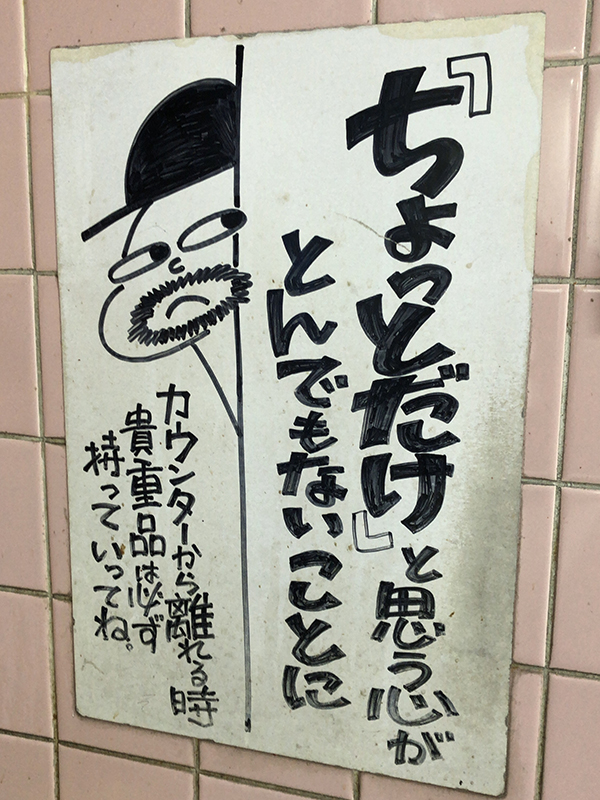 『ちょっとだけ』と思う心が
とんでもないことに
カウンターから離れる時
貴重品は必ず
持っていってね。